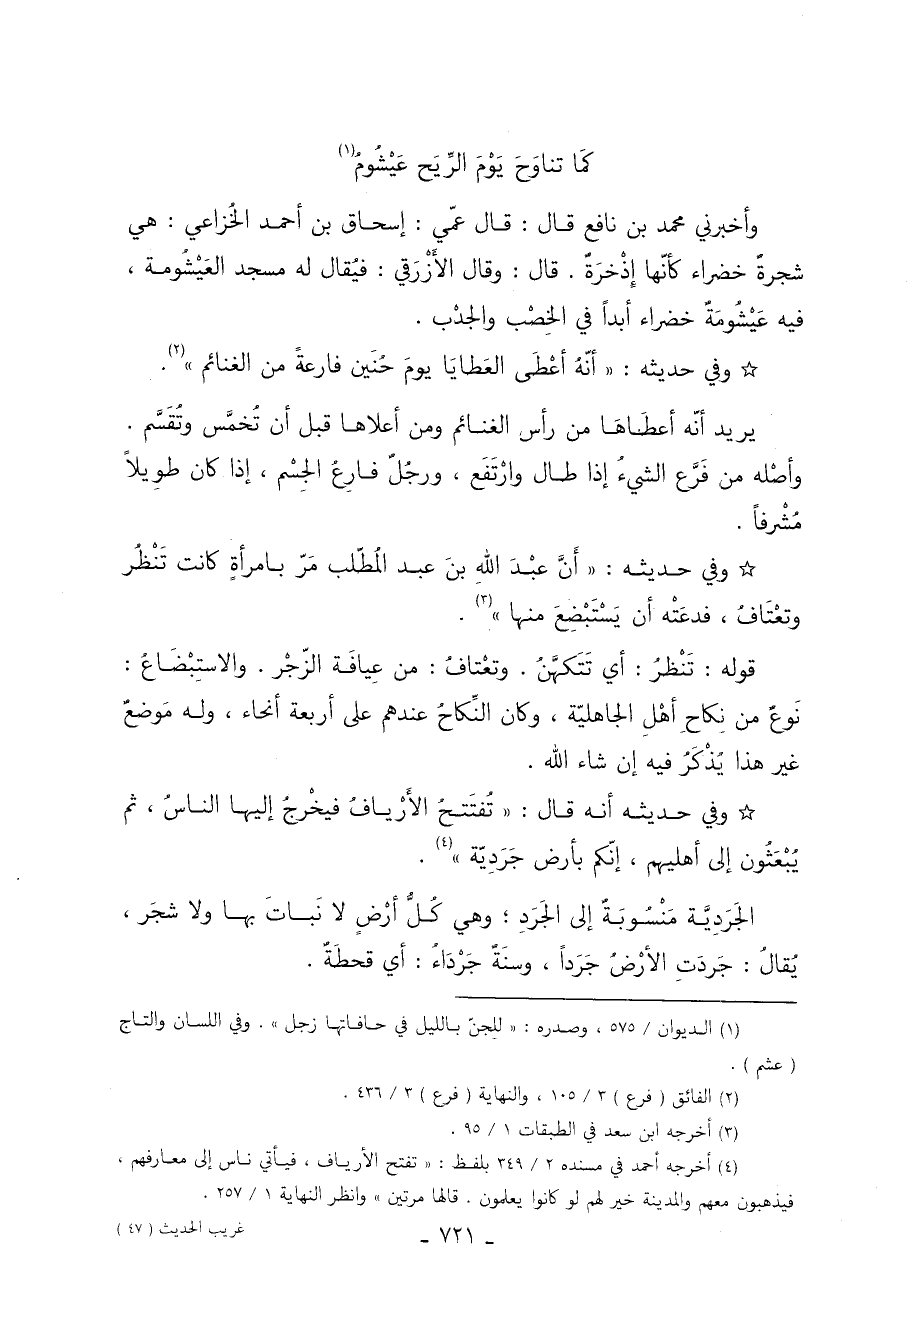 كَمَا تناوَحَ يَوْمَ الرِّيَح عَيْشُومُ(١)
وأخبرني محمد بن نافع قال : قال عمّي : إسحاق بن أحمد الخُزاعي : هي
شجرةٌ خضراء كأنّها إذْخرَةٌ . قال : وقال الأَزْرَقي : فيُقال له مسجد العَيْشُومة ،
فيه عَيْشُومَةٌ خضراء أبداً في الخِصْب والجَدْب .
☆ وفي حديثه : « أنّهُ أعْطَى العَطايَا يومَ حُنَين فارعةً من الغنائم »(٢).
يريد أنّه أعطَاهَا من رأس الغنائم ومن أعلاها قبل أن تُخمَّس وتُقسَّم .
وأصْله من فَرَّع الشيءُ إذا طال وارْتَفَع ، ورجُلٌ فارعُ الجِسْم ، إذا كان طويلاً
مُشْرفاً .
☆ وفي حديثه : « أَنَّ عبْدَ اللهِ بنَ عبد المُطّلب مَرّ بامرأةٍ كانت تَنْظُر
وتعْتَافُ ، فدعَتْه أن يَسْتَبْضِعَ منها »(٣) .
قوله : تَنْظرُ : أي تَتَكهَّنُ . وتعْتافُ : من عِيافَة الزّجْر . والاستِبْضَاعُ :
نَوعٌ من نِكاحِ أهْلِ الجاهليّة ، وكان النِّكاحُ عندهم على أربعة أنحاء ، وله مَوضعٌ
غير هذا يُذْكَرُ فيه إن شاء الله .
☆ وفي حديثه أنه قال : « تُفتَتحُ الأَرْيافُ فيخْرجُ إليها الناسُ ، ثم
يُبْعَثُون إلى أهليهم ، إنّكم بأرض جَرَديّة »(٤) .
الجَرَدِيَّة مَنْسُوبَةٌ إلى الجَرَدِ ؛ وهي كُلُّ أرْضٍ لا نَباتَ بها ولا شجَر ،
يُقالُ : جَردَتِ الأرْضُ جَرَداً ، وسنَةٌ جَرْدَاءُ : أي قحطَةٌ .
(١) الديوان / ٥٧٥ ، وصدره : « للجنّ بالليل في حافاتها زجل » . وفي اللسان والتاج
( عشم ) .
(٢) الفائق ( فرع ) ٣ / ١٠٥ ، والنهاية ( فرع ) ٣ / ٤٣٦ .
(٣) أخرجه ابن سعد في الطبقات ١ / ٩٥ .
(٤) أخرجه أحمد في مسنده ٢ / ٣٤٩ بلفظ : « تفتح الأرياف ، فيأتي ناس إلى معارفهم ،
فيذهبون معهم والمدينة خير لهم لو كانوا يعلمون . قالها مرتين » وانظر النهاية ١ / ٢٥٧ .
- ٧٢١ -
غريب الحديث ( ٤٧ )